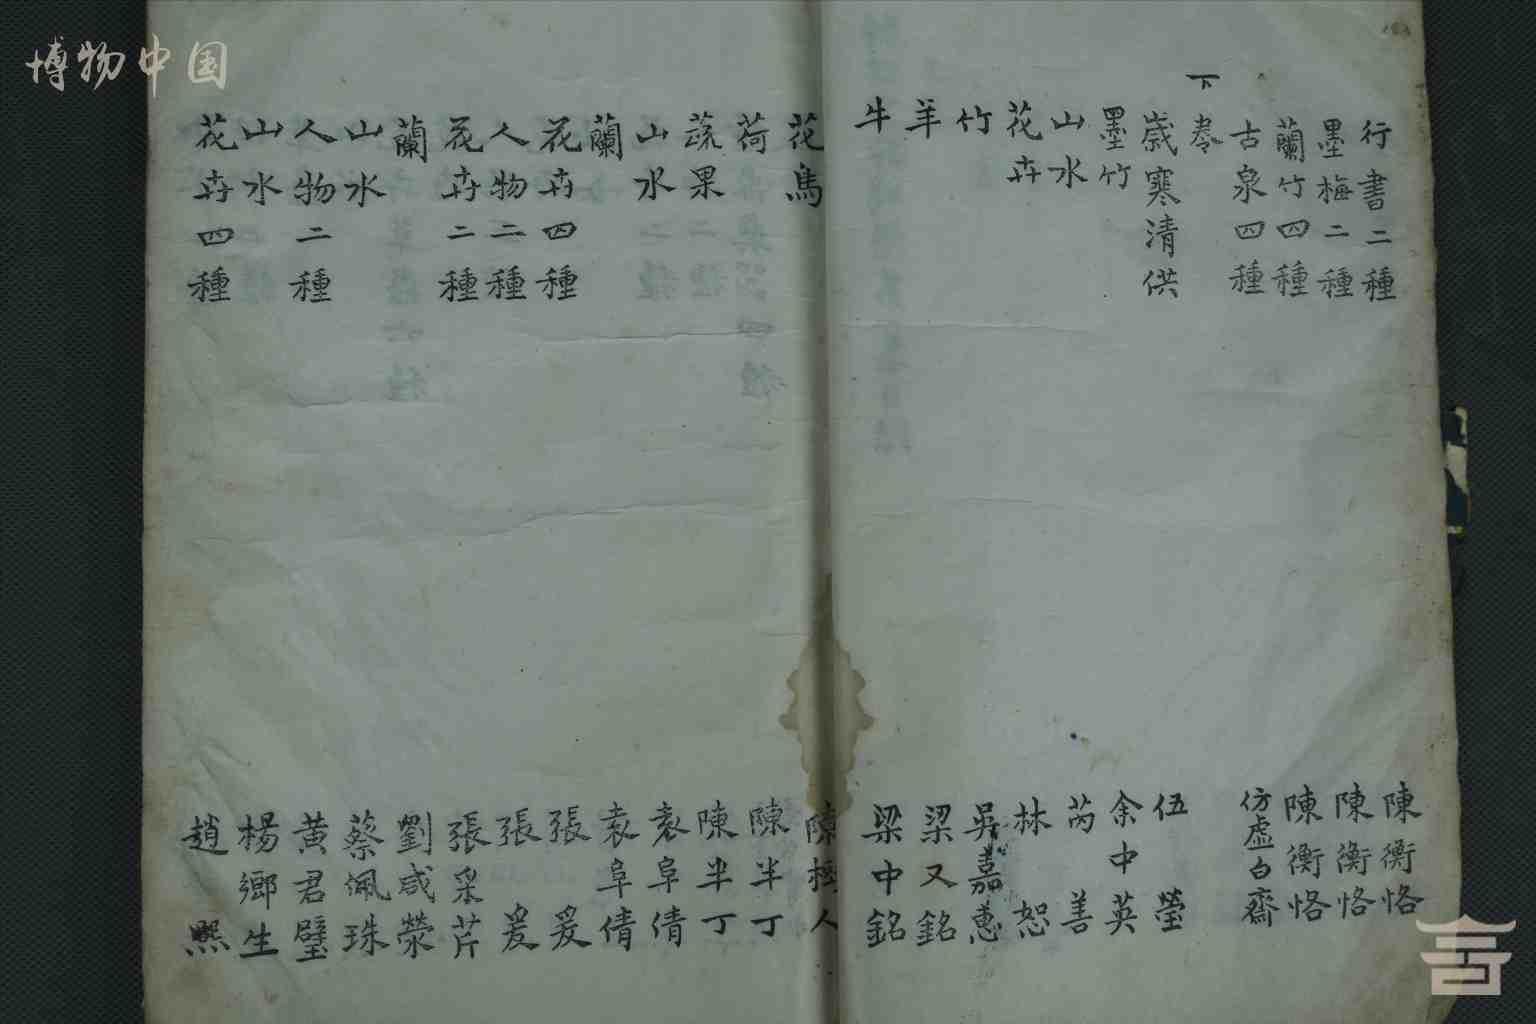 博物中国
行書二種 陳衡恪
墨梅二種 陳衡恪
蘭竹四種 陳衡恪
古泉四種 仿虛白齋
下卷
歲寒清供 伍瑩
墨竹 余中英
山水 芮善
花卉 林恕
竹 吳嘉蕙
羊 梁又銘
牛 梁中銘
花鳥 陳極人
荷 陳半丁
蔬果 陳半丁
山水 袁阜倩
蘭 袁阜倩
花卉四種 張爰
人物二種 張爰
花卉二種 張采芹
蘭 劉咸滎
山水 蔡佩珠
人物二種 黃君璧
山水 楊鄉生
花卉四種 趙熙